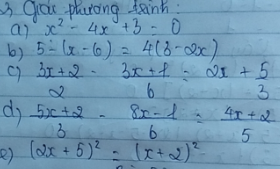 3, Giải phương trình:
a) x² - 4x + 3 = 0
b) 5 - (x - 6) = 4(3 - 2x)
c) (3x + 2)/2 - (3x + 1)/6 = 2x + 5/3
d) (5x + 2)/3 - (8x - 1)/6 = (4x + 2)/5
e) (2x + 5)² = (x + 2)²